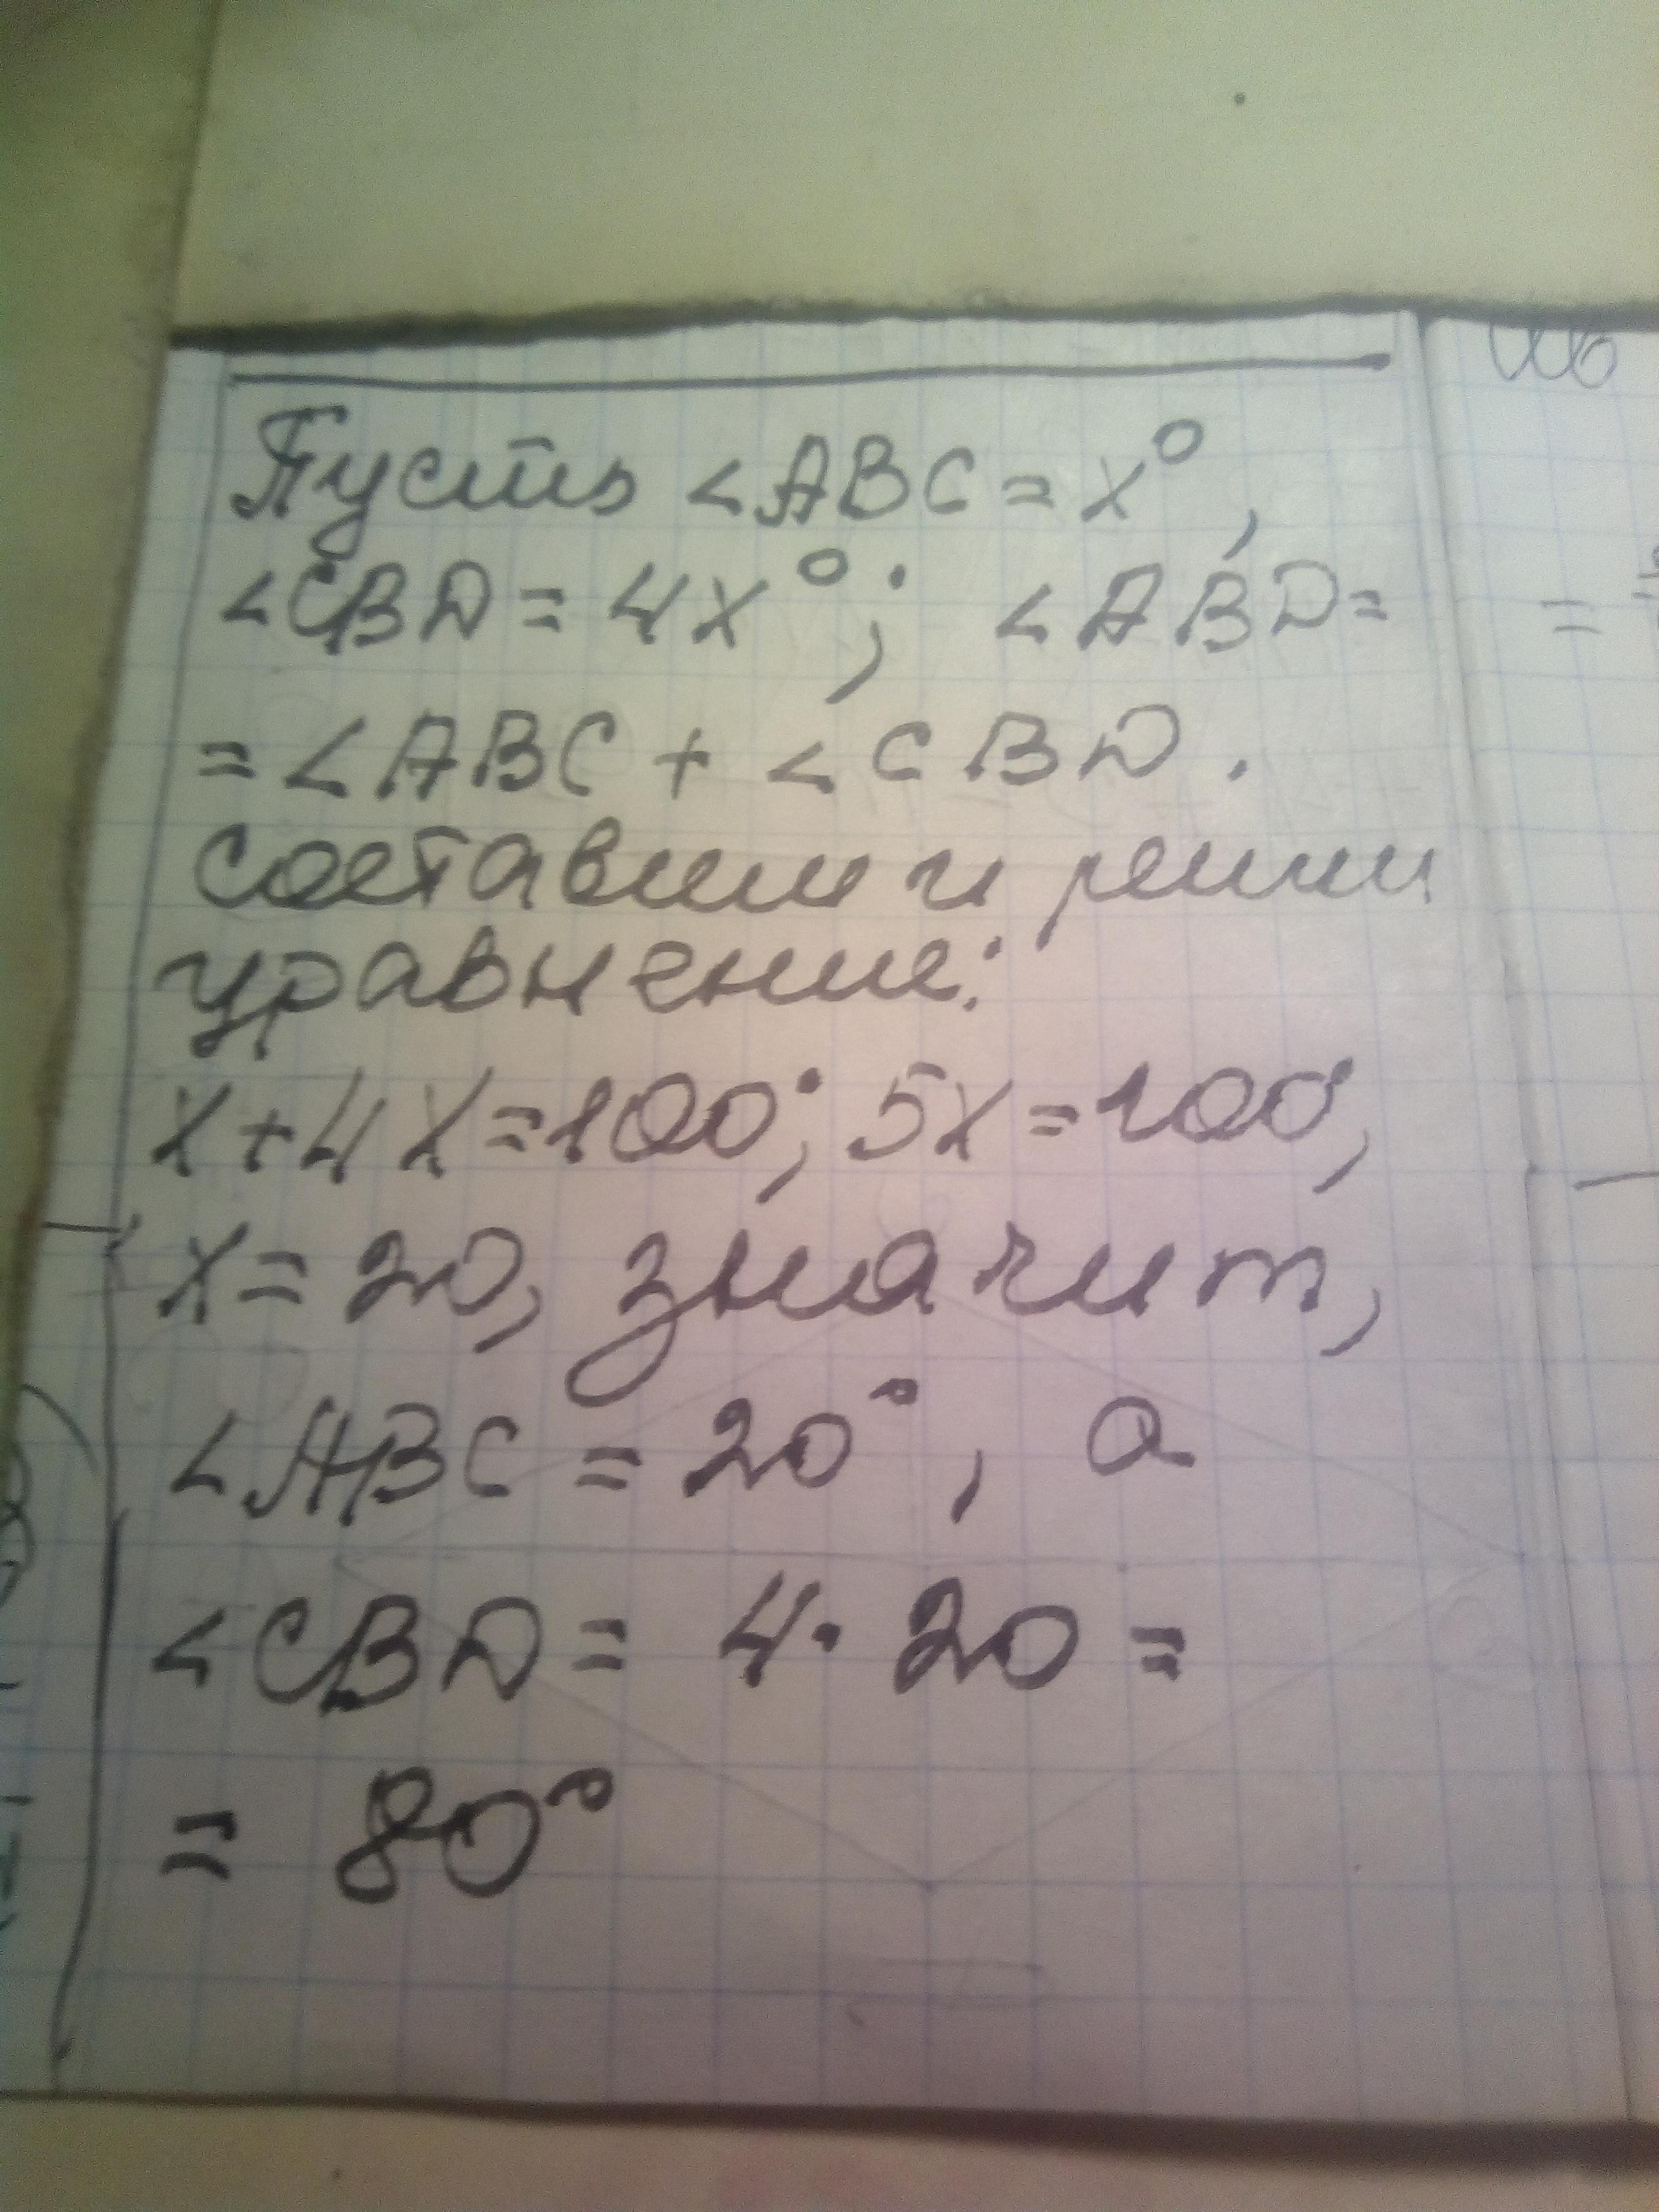 Пусть ∠ABC = x°,
∠CBD = 4x°; ∠ABD =
= ∠ABC + ∠CBD.
составим и реши
уравнение:
x+4x=100; 5x=100,
x = 20, значит,
∠ABC = 20°, а
∠CBD = 4 · 20 =
= 80°